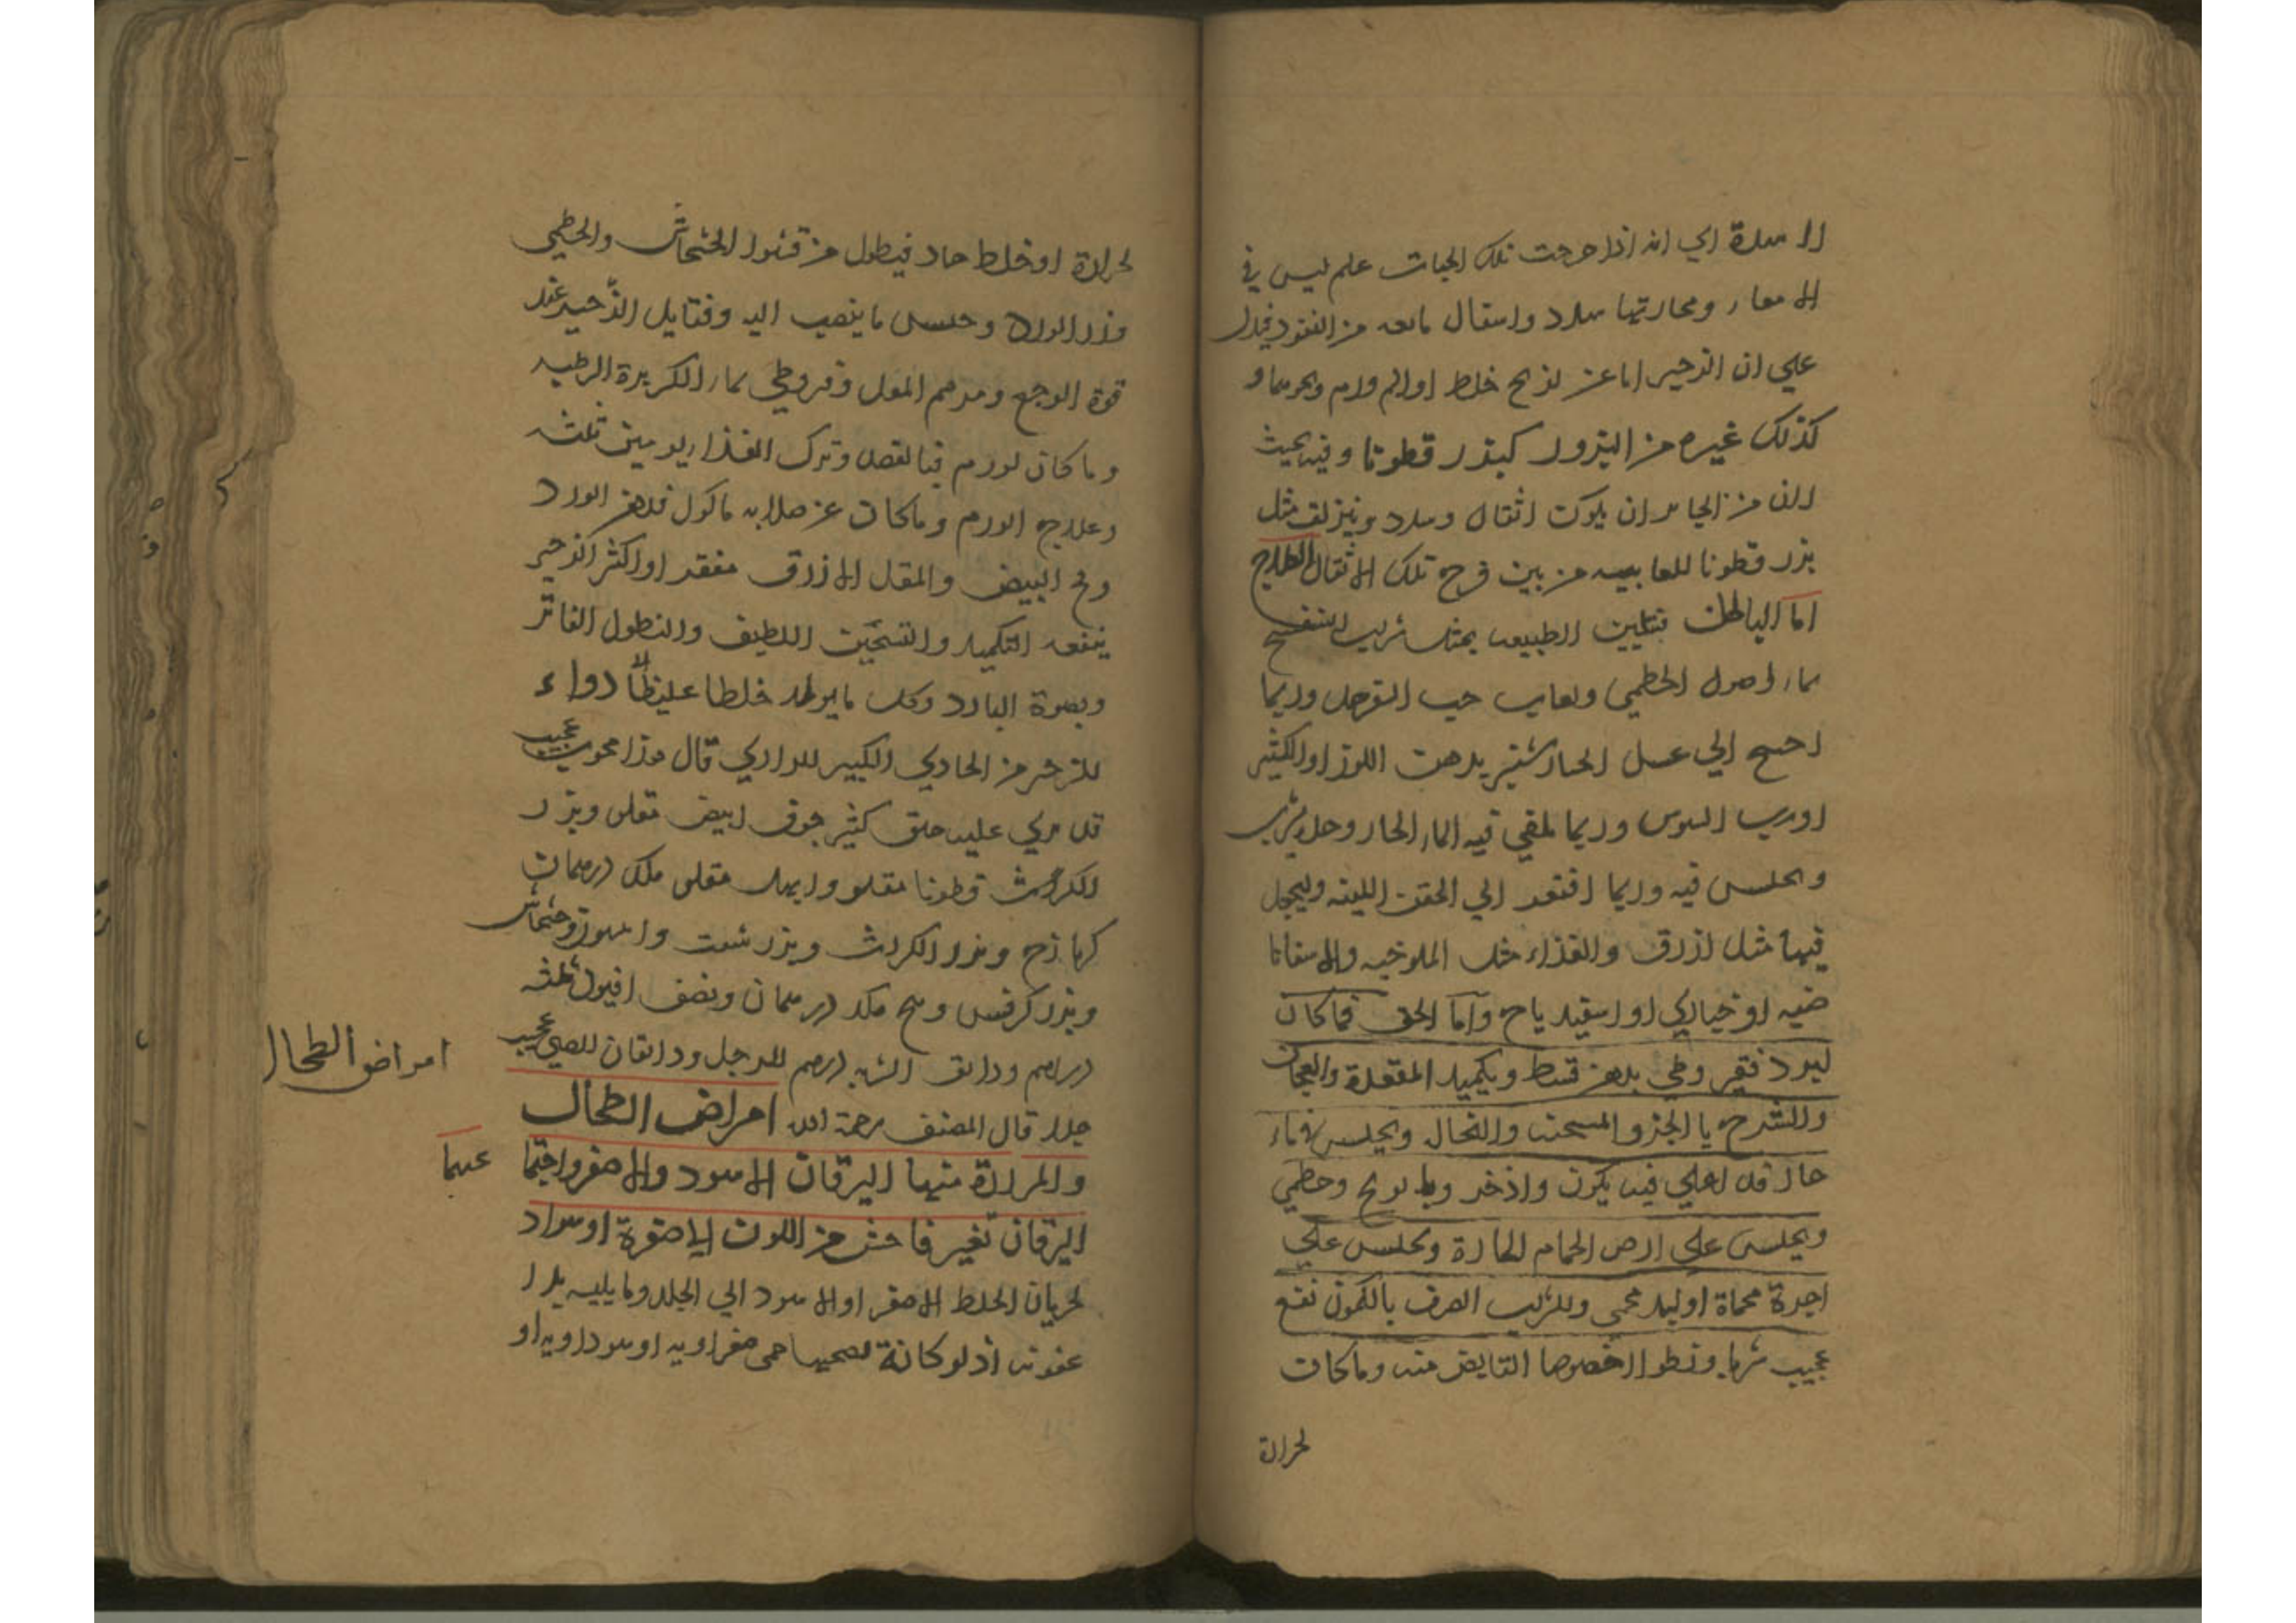 السدة اي انه اذا خرجت تلك الحبات علم ليس في
الامعاء ومجاريها سدد واثقال مانعه من النفود فيدل
علي ان الزحير اما عن لذع خلط او الم ورم ونحوهما و
كذلك غيره من البزور كبزر قطونا وفيه بحيث
لان من الجايز ان يكون اثقال وسدد وينزلق مثل
بزر قطونا للعابيه من بين فرج تلك الاثقال العلاج
اما الباطن فتليين الطبيعه بمثل شراب البنفسج
بماء اصول الخطمي ولعاب حب السفرجل وربما
احتيج الي عسل الخيارشنبر بدهن اللوز او الكثير
اورب السوس وربما يلقي فيه الماء الحار وحده يشرب
ويجلس فيه وربما افتقد الي الحقن اللينه وليجعل
فيها مثل ازرق والغذاء مثل الملوخيه والاسفانا
خيه او خيارى او اسفيد باج واما الحق فما كان
لبرد فقيروطي بدهن قسط وبكميد المقعدة والعجان
والشرج يا الخرق المسخنه والنخال ويجلس في ماء
حار قد اغلي فيه كمون واذخر وبابونج وخطمي
ويجلس علي ارض الحمام الحارة ويجلس علي
اجرة محماة او لبد محمي وللزيت الصرف بالكمون نفع
عجيب شربا ونطولا خصوصا القابض منه وما كان
لحرارة
لحرارة او خلط حاد فبطول من قشور الخشخاش والخطمي
وزر الورد وحبس ما ينصب اليه وفتايل الزحير عند
قوة الوجع ومرهم المقل وقيروطي بماء الكزبرة الرطبه
وما كان لورم فبالفصد وترك الغذاء يومين ثلثه
وعلاج الورم وما كان عن صلابه ماكول فدهن الورد
ومح البيض والمقل الازرق مفقد او اكثر الزحير
ينفعه التكميد والتسخين اللطيف والنطول الفاتر
ويضرة البارد وكل ما يولد خلطا غليظا دواء
للزحير من الحاوي الكبير للرازي قال هذا مجرب عجيب
قد بري عليه خلق كثير جوف ابيض مقلى وبزر
الكراث قطونا مقلو وابهل مقلى ملك درهمان
كرمازج وبزر الكراث وبزر شبت وانيسون وخشخاش
وبزر كرفس ومح مكد درهمان ونصف افيون ثلثه
دراهم ودانق الشربه درهم للرجل ودانقان للصبي عجيب
جدا قال المصنف رحمة الله امراض الطحال
امراض الطحال
والمرارة منها اليرقان الاسود والاصفر واجتما
عهما
اليرقان تغير فاحش من اللون الي صفرة او سواد
لجريان الخلط الاصفر او الاسود الي الجلد وما يليه بلا
عفونه اذ لو كانة لصحبها حمى صفراويه او سوداويه او